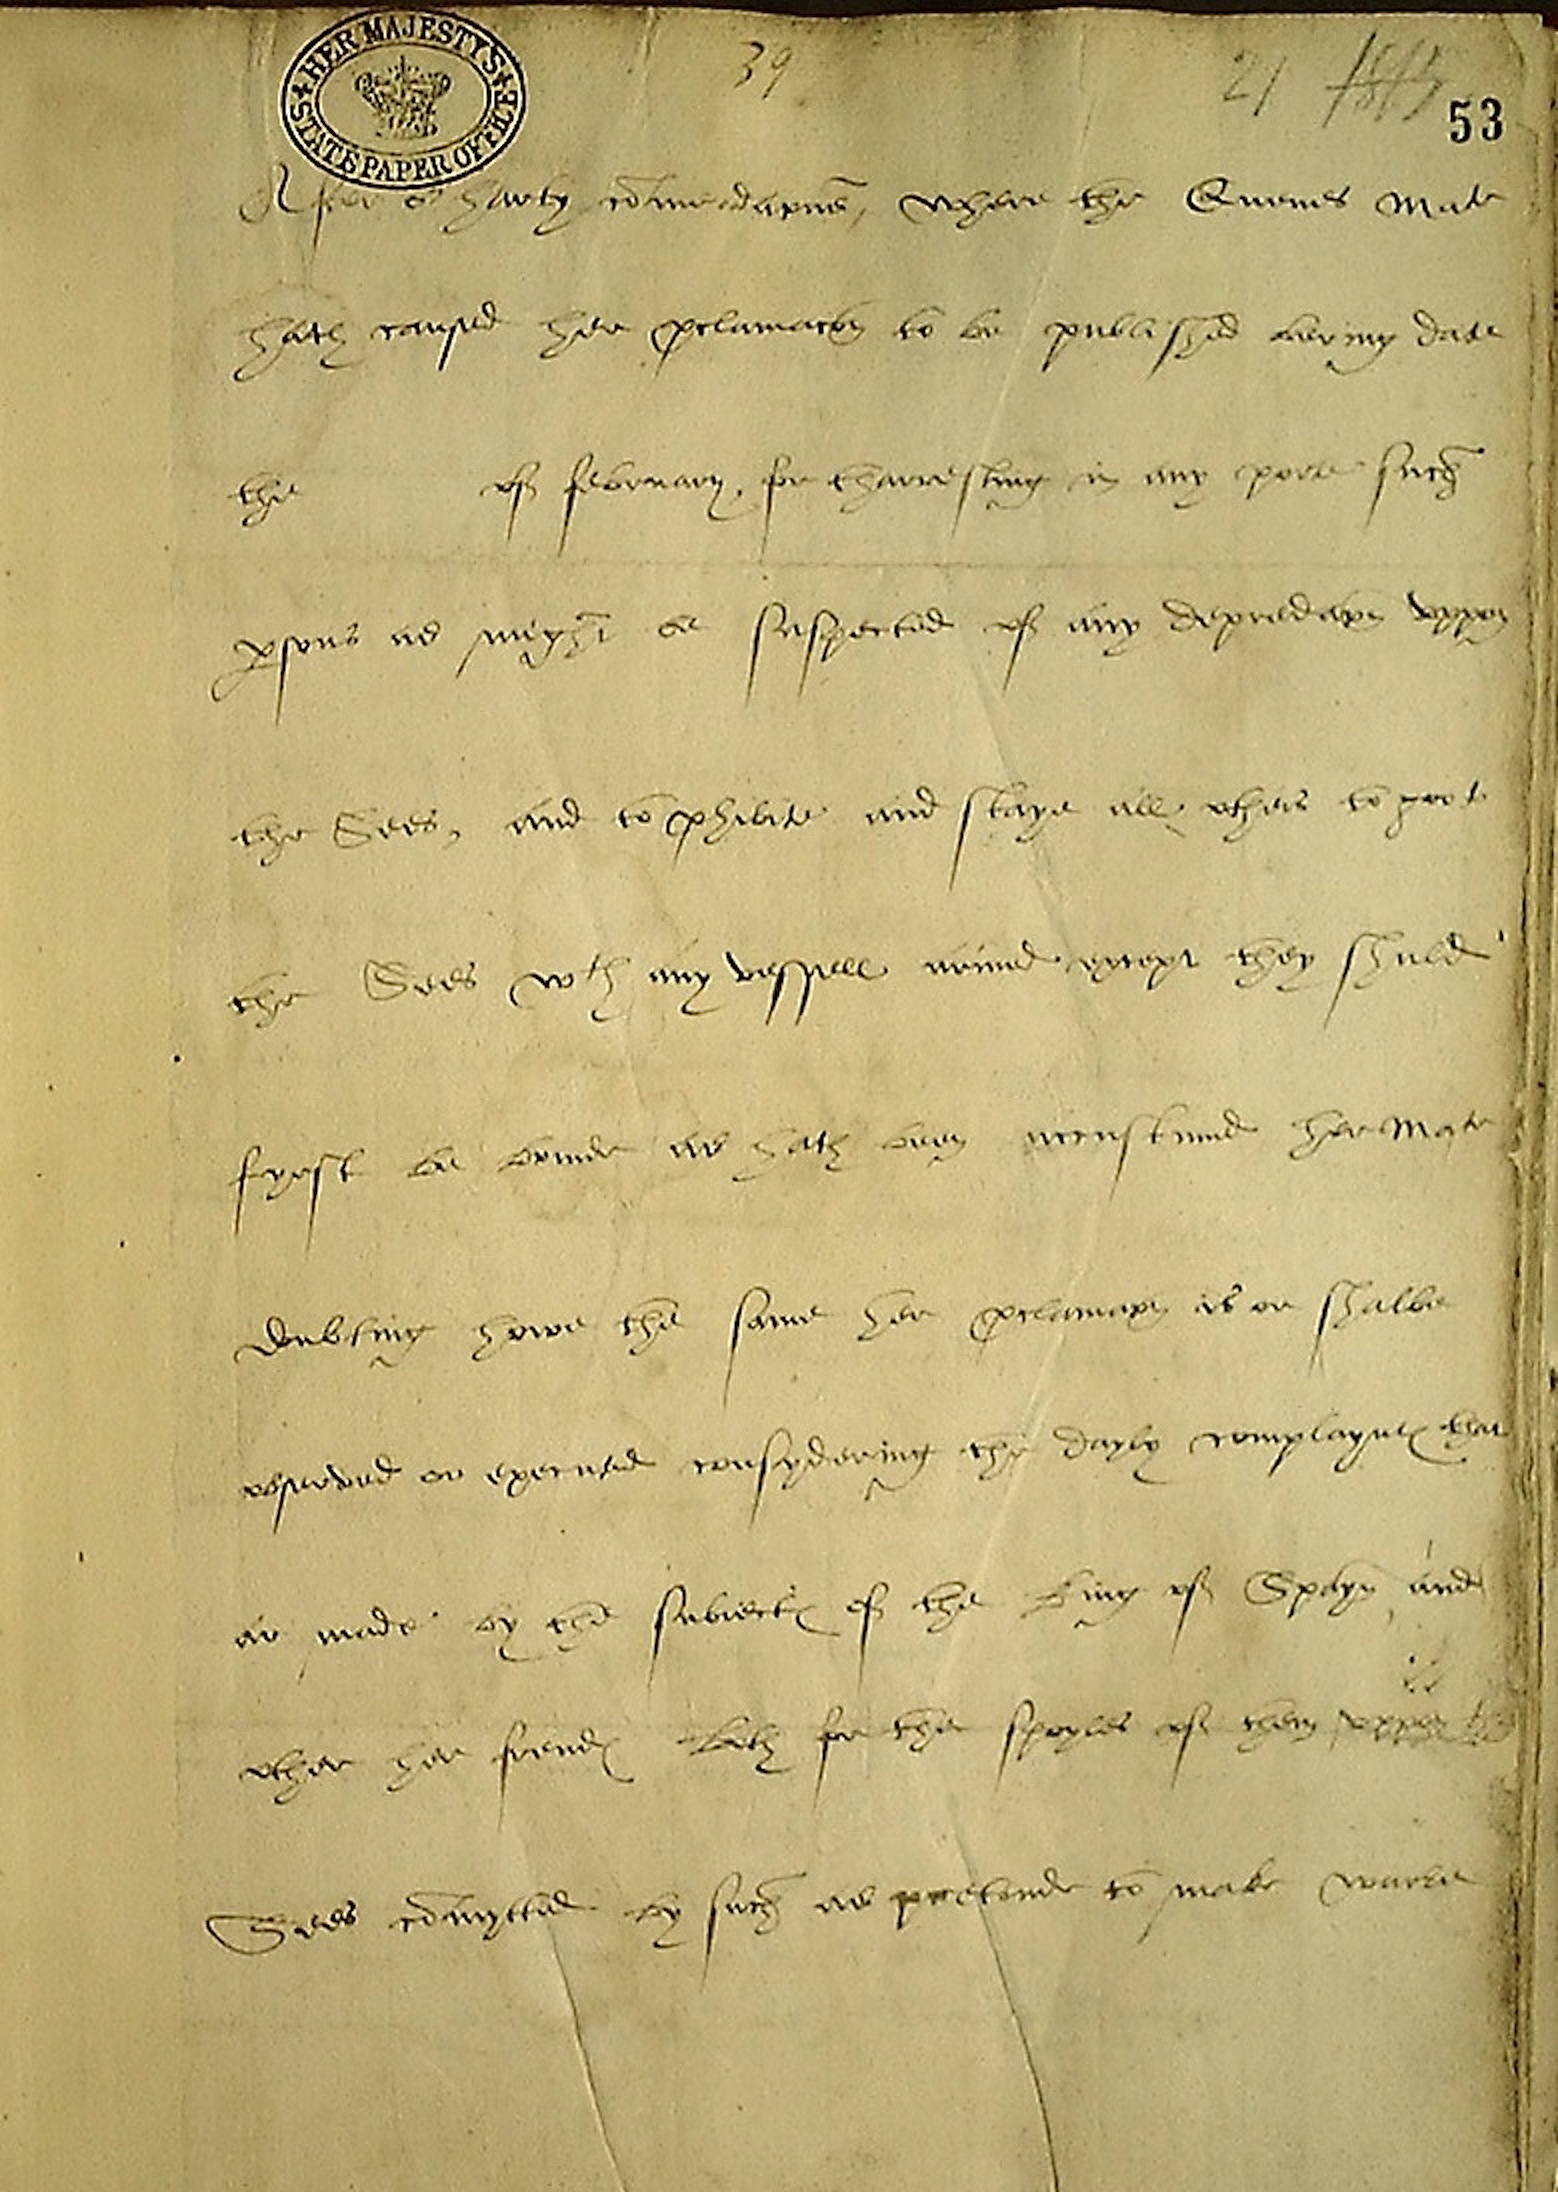 HER MAJESTY'S STATE PAPER OFFICE
39
21
53
After or harty comendacyons, where the Quenes Matie
hath caused her proclamacon to be published bering date
the of february, for tharresting in any porte such
psons as might be suspected of any depredacyon uppon
the Sees, and to phibite and staye all others to
the Sees wth any vessell armed except they shuld
fyrst be bounde as hath been accustumed her Matie
doubting howe the same her proclamacyon is or shalbe
observed or executed consydering the dayly complaynts that
ar made by the subiects of the king of Spayn and
other her frends both for the spoyles of them uppon the
Sees comytted by such as pretende to make warre